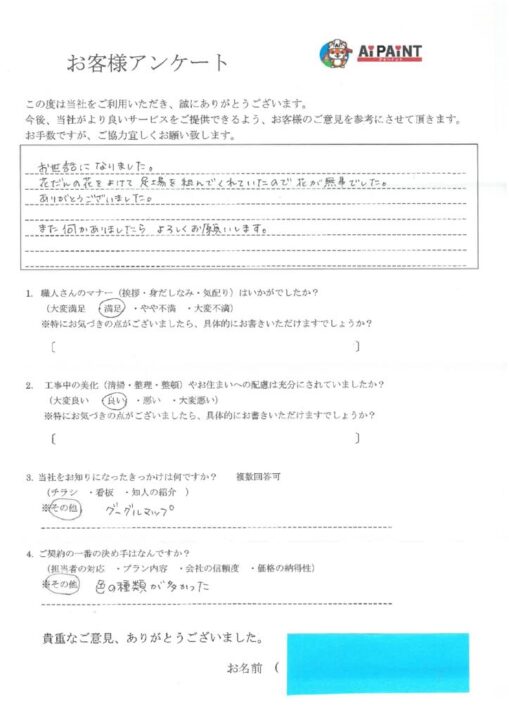 AI PAINT
アイペイント
お客様アンケート
この度は当社をご利用いただき、誠にありがとうございます。
今後、当社がより良いサービスをご提供できるよう、お客様のご意見を参考にさせて頂きます。
お手数ですが、ご協力宜しくお願い致します。
お世話になりました。
花だんの花をよけて足場を組んでくれていたので花が無事でした。
ありがとうございました。
また何かありましたら よろしくお願いします。
1. 職人さんのマナー（挨拶・身だしなみ・気配り）はいかがでしたか？
（大変満足 ・満足 ・やや不満 ・大変不満）
※特にお気づきの点がございましたら、具体的にお書きいただけますでしょうか？
〔 〕
2. 工事中の美化（清掃・整理・整頓）やお住まいへの配慮は充分にされていましたか？
（大変良い ・良い ・悪い ・大変悪い）
※特にお気づきの点がございましたら、具体的にお書きいただけますでしょうか？
〔 〕
3. 当社をお知りになったきっかけは何ですか？ 複数回答可
（チラシ ・看板 ・知人の紹介 ）
※その他 グーグルマップ
4. ご契約の一番の決め手はなんですか？
（担当者の対応 ・プラン内容 ・会社の信頼度 ・価格の納得性）
※その他 色の種類が多かった
貴重なご意見、ありがとうございました。
お名前（